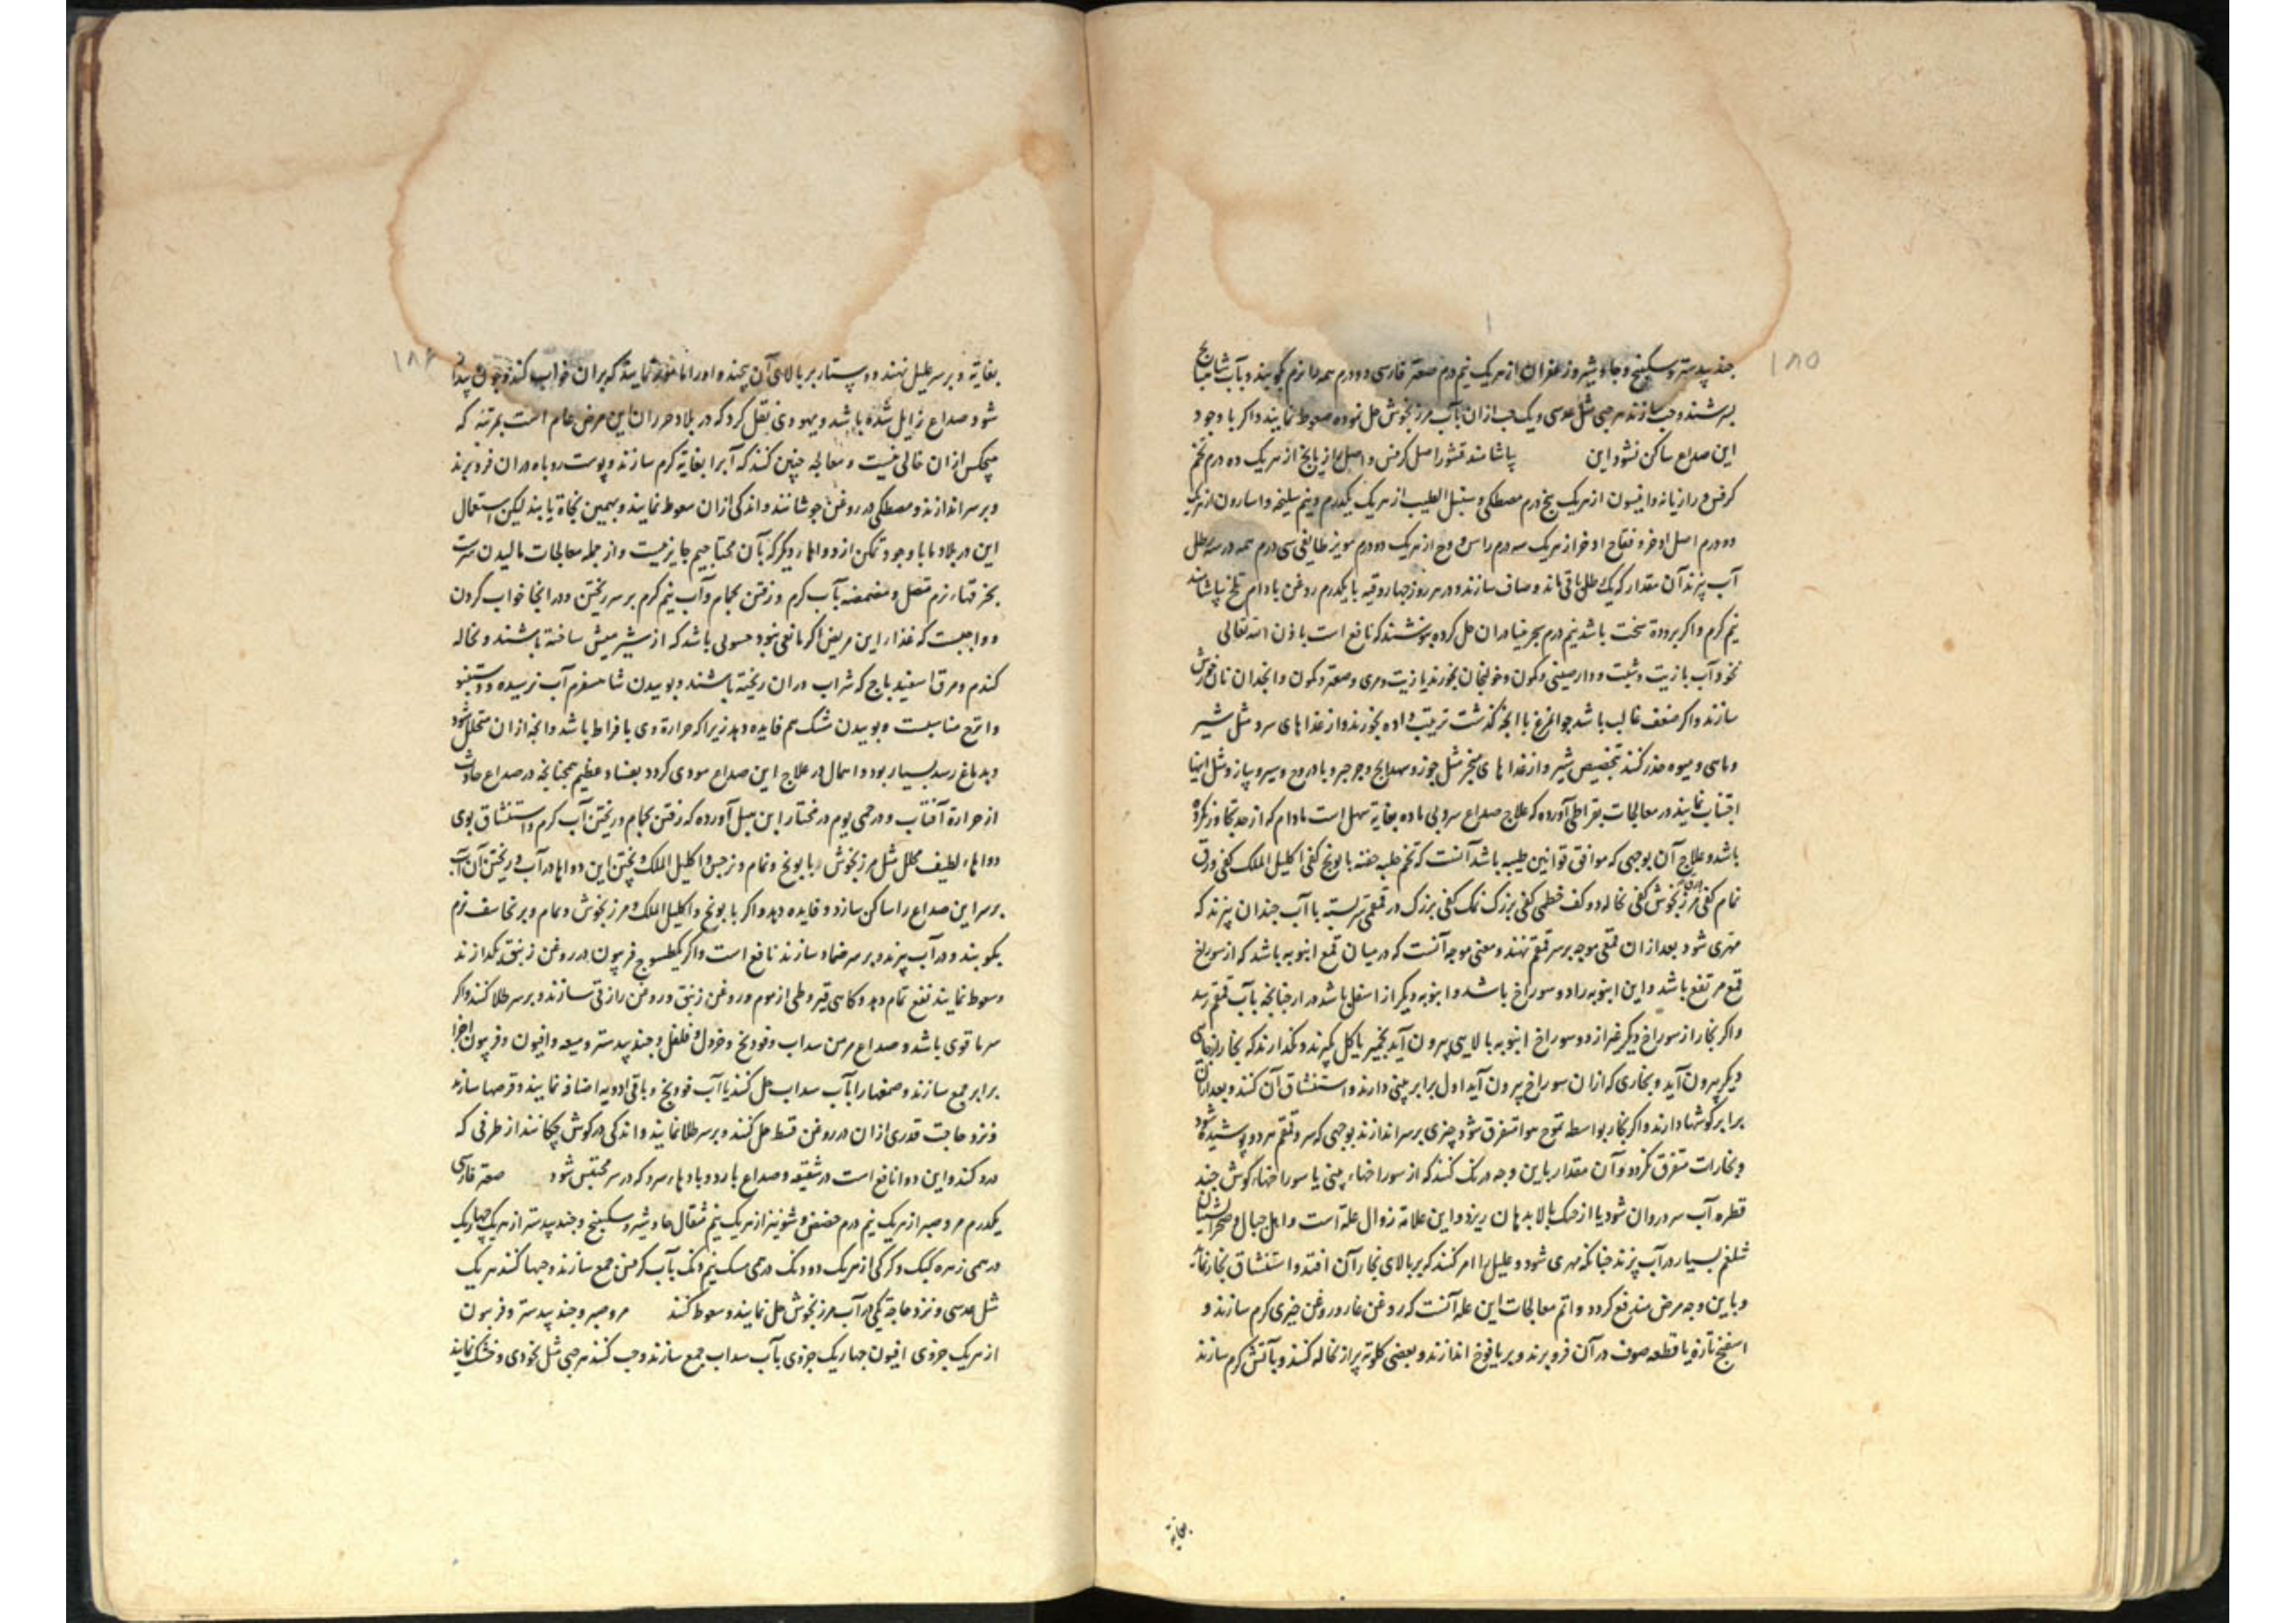 ۱۸۵
جندبیدستر و سکبینج و جاوشیر و زعفران از هریک نیم درم صعتر فارسی دو درم همه را نرم بکوبند و بآب
بسرشند و حب سازند هر حبی مثل عدسی و یک حب ازان بآب مرزنجوش حل نموده سعوط نمایند و اگر با وجود
این صداع ساکن نشود این بیاشامند قشور اصل کرفس و اصل رازیانج از هریک ده درم تخم
کرفس و رازیانه و انیسون از هریک پنج درم مصطکی و سنبل الطیب از هریک یکدرم و نیم سلیخه و اسارون از هریک
دو درم اصل اذخر و فقاح اذخر از هریک سه درم راسن و وج از هریک دو درم مویز طایفی سی درم همه در سه رطل
آب پزند آن مقدار که یک رطل باقی ماند و صاف سازند و در هر روز چهار وقیه با یکدرم روغن بادام تلخ بیاشامند
نیم گرم و اگر برودة سخت باشد نیم درم سجرنیا دران حل کرده بنوشند که نافع است باذن الله تعالی
نخودآب با زیت و شبت و دارصینی و کمون و خولنجان بخورند یا زیت و مری و صعتر و کمون و انجدان نان خورش
سازند و اگر ضعف غالب باشد جوامرغ با آنچه گذشت ترتیب داده بخورند و از غذاهای سرد مثل شیر
و ماهی و میوه حذر کنند بتخصیص شیر و از غذاهای مبخر مثل جوز و و جرجیر و بادروج و سیر و پیاز و مثل اینها
اجتناب نمایند در معالجات بقراطی آورده که علاج صداع سرد بی ماده بغایة سهل است مادام که از حد تجاوز نکرده
باشد و علاج آن بوجهی که موافق قوانین طبیه باشد آنست که تخم حلبه حفنه بابونج کفی اکلیل الملک کفی ورق
نمام کفی مرزنجوش کفی نخاله دو کف خطمی کفی بزرک نمک کفی بزرک در قمقمی سربسته با آب چندان پزند که
مهری شود بعد ازان قمعی موجه بر سر قمقم نهند و معنی موجه آنست که در میان قمع انبوبه باشد که از سوراخ
قمع مرتفع باشد و این انبوبه را دو سوراخ باشد و انبوبه دیگر از اسفل باشد دراز چنانچه بآب قمقم رسد
و اگر بخار از سوراخ دیگر غیر از دو سوراخ انبوبه بالایین بیرون آید بخمیر یا گل بگیرند و نگذارند که بخار از جای
دیگر بیرون آید و بخاری که ازان سوراخ بیرون آید اول برابر بینی دارند و استنشاق آن کنند و بعد ازان
برابر گوشها دارند و اگر بخار بواسطه تموج هوا متفرق شود چیزی بر سر اندازند بوجهی که سر و قمقم هر دو پوشیده شود
و بخارات متفرق نگردد و آن مقدار باین وجه درنگ کنند که از سوراخهاء بینی یا سوراخهاء گوش چند
قطره آب سر روان شود یا از حنک بالا بدهان ریزد و این علامة زوال علة است و اهل جبال و صحرانشینان
شلغم بسیار در آب پزند چنانکه مهری شود و علیل را امر کنند که بر بالای بخار آن افتد و استنشاق بخار نماید
و باین وجه مرض مندفع گردد و اتم معالجات این علة آنست که روغن غار و روغن خیری گرم سازند و
اسفنج تازه یا قطعه صوف در آن فرو برند و بر یافوخ اندازند و بعضی کلوته پر از نخاله کنند و بآتش گرم سازند
بغایة
۱۸۶
بغایة و بر سر علیل نهند و دستار بر بالای آن پیچند و او را مامور نمایند که بران خواب کند و چون بیدار
شود صداع زایل شده باشد و یهودی نقل کرد که در بلاد حران این مرض عام است بمرتبه که
هیچکس ازان خالی نیست و معالجه چنین کنند که آب را بغایة گرم سازند و پوست روباه دران فرو برند
و بر سر اندازند و مصطکی در روغن جوشانند و اندکی ازان سعوط نمایند و بهمین نجاة یابند لیکن استعمال
این در بلاد ما با وجود تمکن از دواهاء دیگر که بآن محتاجیم جایز نیست و از جمله معالجات مالیدن سرست
بخرقهاء نرم متصل و مضمضه بآب گرم و رفتن بحمام و آب نیم گرم بر سر ریختن و در انجا خواب کردن
و واجبست که غذاء این مریض اگر مانعی نبود حسوی باشد که از شیر میش ساخته باشند و نخاله
گندم و مرق اسفیدباج که شراب دران ریخته باشند و بوییدن شاهسفرم آب نرسیده و
و اترج مناسبست و بوییدن مشک هم فایده دهد زیرا که حرارة وی بافراط باشد و آنچه ازان متحلل شود
و بدماغ رسد بسیار بود و اسهال در علاج این صداع مودی گردد بفساد عظیم همچنانچه در صداع حادث
از حرارة آفتاب و در حمی یوم در مختار ابن هبل آورده که رفتن بحمام و ریختن آب گرم و استنشاق بوی
دواهاء لطیف محلل مثل مرزنجوش و بابونج و نمام و نرجس و اکلیل الملک و پختن این دواها در آب و ریختن آن آب
بر سر این صداع را ساکن سازد و فایده دهد و اگر بابونج و اکلیل الملک و مرزنجوش و نمام و برنجاسف نرم
بکوبند و در آب پزند و بر سر ضماد سازند نافع است و اگر یکطسوج فربیون در روغن زنبق بگدازند
و سعوط نمایند نفع تمام دهد و گاهی قیروطی از موم و روغن زنبق و روغن رازقی سازند و بر سر طلا کنند و اگر
سرما قوی باشد و صداع مزمن سداب و فودنج و خردل و فلفل و جندبیدستر و میعه و افیون و فربیون اجزا
برابر جمع سازند و صمغها را بآب سداب حل کنند یا آب فودنج و باقی ادویه اضافه نمایند و قرصها سازند
و نزد حاجت قدری ازان در روغن قسط حل کنند و بر سر طلا نمایند و اندکی در گوش چکانند از طرفی که
درد کند و این دوا نافع است در شقیقه و صداع بارد و بادهاء سرد که در سر محتبس شود صعتر فارسی
یکدرم مر و صبر از هریک نیم درم حضض و شونیز از هریک نیم مثقال جاوشیر و سکبینج و جندبیدستر از هریک چهاریک
درهمی زهره کبک و کرکی از هریک دو دنگ درهمی مسک نیم دنگ بآب کرفس جمع سازند و حبها کنند هریک
مثل عدسی و نزد حاجة یکی در آب مرزنجوش حل نمایند و سعوط کنند مر و صبر و جندبیدستر و فربیون
از هریک جزوی افیون چهاریک جزوی بآب سداب جمع سازند و حب کنند هر حبی مثل نخودی و خشک نمایند